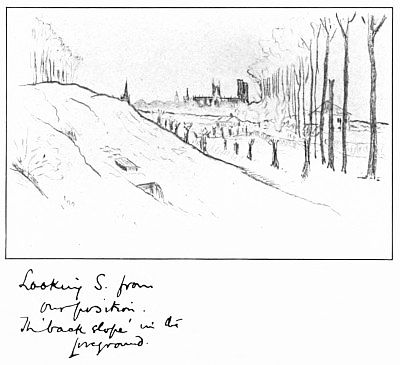 Looking S. from
our position.
Th' 'back slope' in the
foreground.